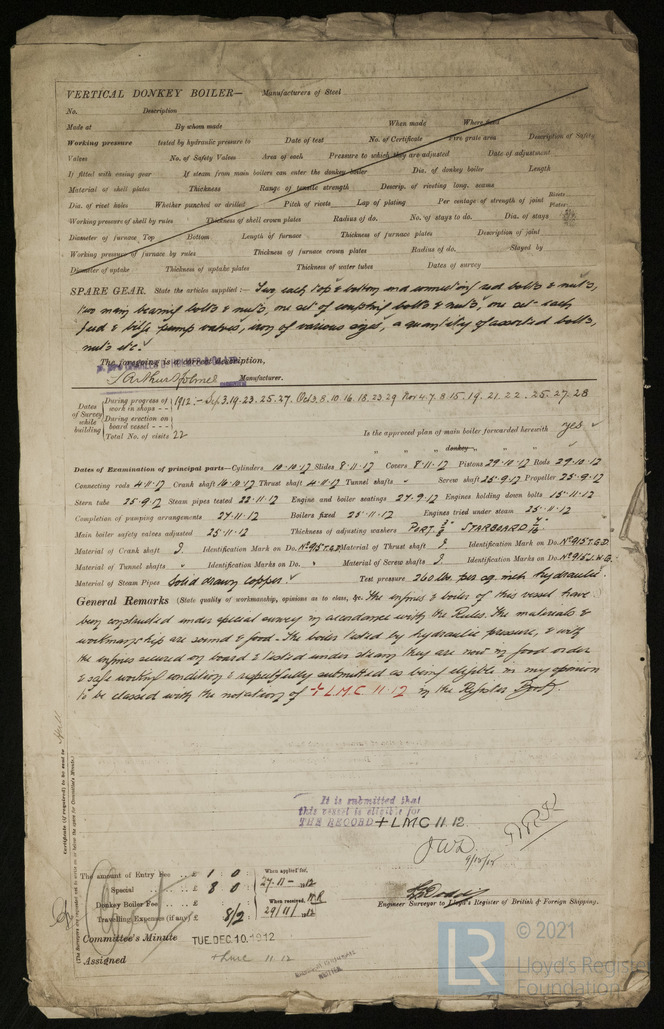 VERTICAL DONKEY BOILER— Manufacturers of Steel
No. Description
Made at By whom made When made Where fixed
Working pressure tested by hydraulic pressure to Date of test No. of Certificate Fire grate area Description of Safety
Valves No. of Safety Valves Area of each Pressure to which they are adjusted Date of adjustment
If fitted with easing gear If steam from main boilers can enter the donkey boiler Dia. of donkey boiler Length
Material of shell plates Thickness Range of tensile strength Descrip. of riveting long. seams
Dia. of rivet holes Whether punched or drilled Pitch of rivets Lap of plating Per centage of strength of joint Rivets Plates
Working pressure of shell by rules Thickness of shell crown plates Radius of do. No. of stays to do. Dia. of stays
Diameter of furnace Top Bottom Length of furnace Thickness of furnace plates Description of joint
Working pressure of furnace by rules Thickness of furnace crown plates Radius of do. Stayed by
Diameter of uptake Thickness of uptake plates Thickness of water tubes Dates of survey
SPARE GEAR. State the articles supplied :— Two each top & bottom end connecting rod bolts & nuts,
two main bearing bolts & nuts, one set of coupling bolts & nuts, one set each
feed & bilge pump valves, iron of various sizes, a quantity of assorted bolts,
nuts etc.
The foregoing is a correct description,
Manufacturer.
Dates of Survey while building
During progress of work in shops - - 1912. - Sep. 3. 19. 23. 25. 27. Oct 3. 8. 10. 16. 18. 23. 29 Nov 4. 7. 8. 15. 19. 21. 22. 25. 27. 28
During erection on board vessel - - -
Total No. of visits 22
Is the approved plan of main boiler forwarded herewith yes
" " donkey " " "
Dates of Examination of principal parts—Cylinders 10.10.12 Slides 8.11.12 Covers 8.11.12 Pistons 29.10.12 Rods 29.10.12
Connecting rods 4.11.12 Crank shaft 16.10.12 Thrust shaft 4.11.12 Tunnel shafts " Screw shaft 25.9.12 Propeller 25.9.12
Stern tube 25.9.12 Steam pipes tested 22.11.12 Engine and boiler seatings 27.9.12 Engines holding down bolts 15.11.12
Completion of pumping arrangements 27.11.12 Boilers fixed 25.11.12 Engines tried under steam 25.11.12
Main boiler safety valves adjusted 25.11.12 Thickness of adjusting washers PORT STARBOARD
Material of Crank shaft I. Identification Mark on Do. No 915 T.G.D. Material of Thrust shaft I. Identification Mark on Do. No 915 T.G.D.
Material of Tunnel shafts " Identification Marks on Do. " Material of Screw shafts I. Identification Marks on Do. No 915 J.H.G.
Material of Steam Pipes Solid drawn copper. Test pressure 260 lbs. per sq. inch hydraulic.
General Remarks (State quality of workmanship, opinions as to class, &c. The engines & boiler of this vessel have
been constructed under special survey in accordance with the Rules. The materials &
workmanship are sound & good. The boiler tested by hydraulic pressure, & with
the engines secured on board & tested under steam they are now in good order
& safe working condition & respectfully submitted as being eligible in my opinion
to be classed with the notation of + LMC 11.12 in the Register Book
Certificate (if required) to be sent to
(The Surveyors are requested not to write on or below the space for Committee's Minute.)
It is submitted that
this vessel is eligible for
THE RECORD + LMC 11.12.
J.W.D.
9/12/12
The amount of Entry Fee . . £ 1 : 0 : When applied for,
Special . . . . £ 8 : 0 : 27.11.1912
Donkey Boiler Fee . . . . £ : : When received,
Travelling Expenses (if any) £ : 8/2 : 29/11/1912
Engineer Surveyor to Lloyd's Register of British & Foreign Shipping.
Committee's Minute TUE. DEC. 10. 1912
Assigned + LMC 11.12
LR © 2021
Lloyd's Register
Foundation